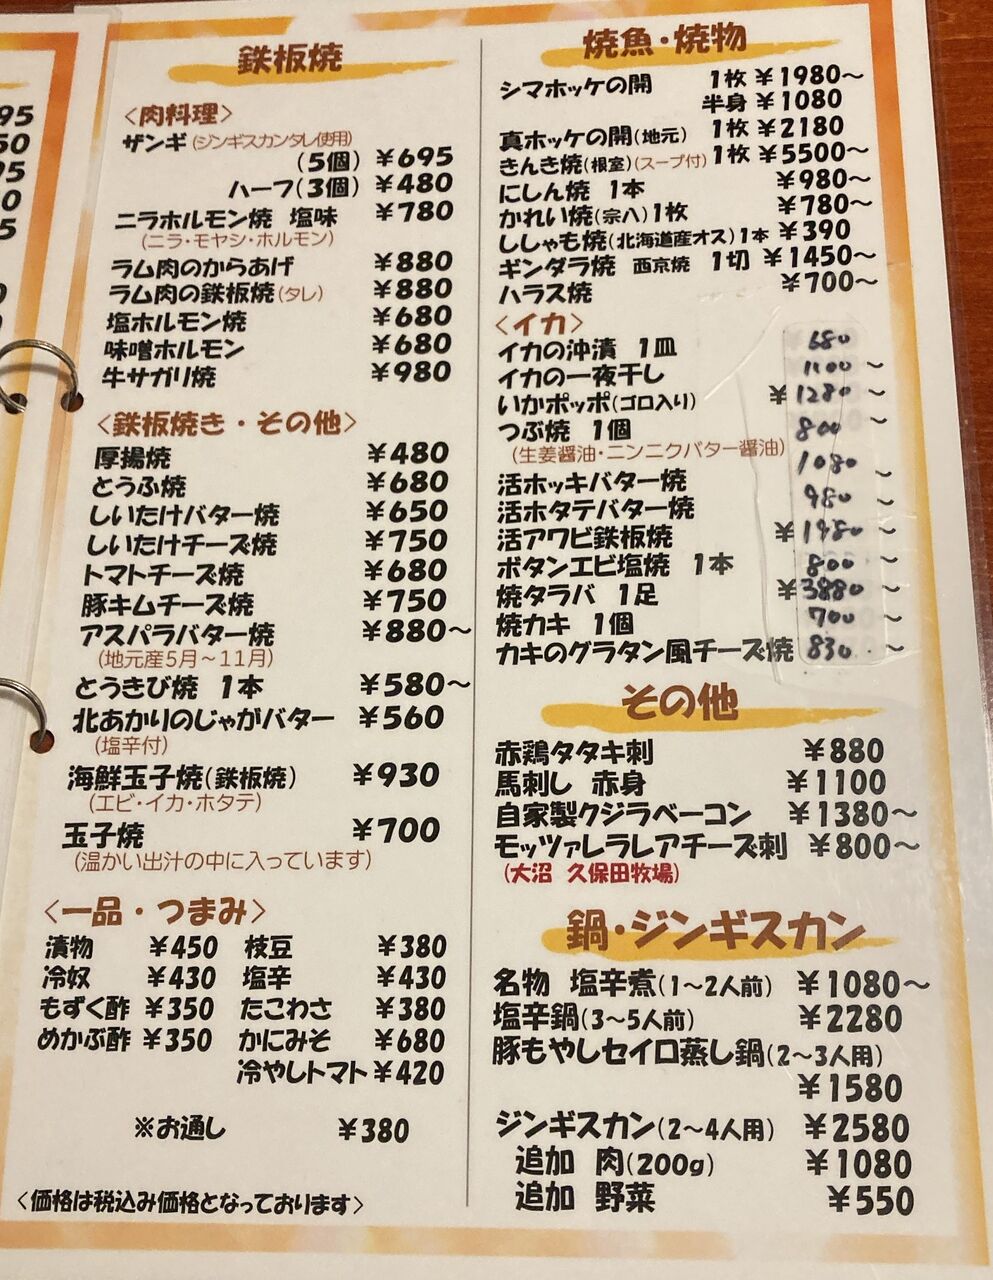 95
50
95
0
5
鉄板焼
〈肉料理〉
ザンギ(ジンギスカンタレ使用)
(5個) ¥695
ハーフ(3個) ¥480
ニラホルモン焼 塩味 ¥780
(ニラ・モヤシ・ホルモン)
ラム肉のからあげ ¥880
ラム肉の鉄板焼(タレ) ¥880
塩ホルモン焼 ¥680
味噌ホルモン ¥680
牛サガリ焼 ¥980
〈鉄板焼き・その他〉
厚揚焼 ¥480
とうふ焼 ¥680
しいたけバター焼 ¥650
しいたけチーズ焼 ¥750
トマトチーズ焼 ¥680
豚キムチーズ焼 ¥750
アスパラバター焼 ¥880～
(地元産5月～11月)
とうきび焼 1本 ¥580～
北あかりのじゃがバター ¥560
(塩辛付)
海鮮玉子焼(鉄板焼) ¥930
(エビ・イカ・ホタテ)
玉子焼 ¥700
(温かい出汁の中に入っています)
〈一品・つまみ〉
漬物 ¥450 枝豆 ¥380
冷奴 ¥430 塩辛 ¥430
もずく酢 ¥350 たこわさ ¥380
めかぶ酢 ¥350 かにみそ ¥680
冷やしトマト ¥420
※お通し ¥380
〈価格は税込み価格となっております〉
焼魚・焼物
シマホッケの開 1枚 ¥1980～
半身 ¥1080
真ホッケの開(地元) 1枚 ¥2180
きんき焼(根室)(スープ付) 1枚 ¥5500～
にしん焼 1本 ¥980～
かれい焼(宗八)1枚 ¥780～
ししゃも焼(北海道産オス)1本 ¥390
ギンダラ焼 西京焼 1切 ¥1450～
ハラス焼 ¥700～
〈イカ〉
イカの沖漬 1皿 680
イカの一夜干し 1100～
いかポッポ(ゴロ入り) ¥1280～
つぶ焼 1個 800～
(生姜醤油・ニンニクバター醤油)
活ホッキバター焼 1080～
活ホタテバター焼 980～
活アワビ鉄板焼 ¥1980～
ボタンエビ塩焼 1本 800～
焼タラバ 1足 ¥3880～
焼カキ 1個 700～
カキのグラタン風チーズ焼 830～
その他
赤鶏タタキ刺 ¥880
馬刺し 赤身 ¥1100
自家製クジラベーコン ¥1380～
モッツァレラレアチーズ刺 ¥800～
(大沼 久保田牧場)
鍋・ジンギスカン
名物 塩辛煮(1～2人前) ¥1080～
塩辛鍋(3～5人前) ¥2280
豚もやしセイロ蒸し鍋(2～3人用)
¥1580
ジンギスカン(2～4人用) ¥2580
追加 肉(200g) ¥1080
追加 野菜 ¥550